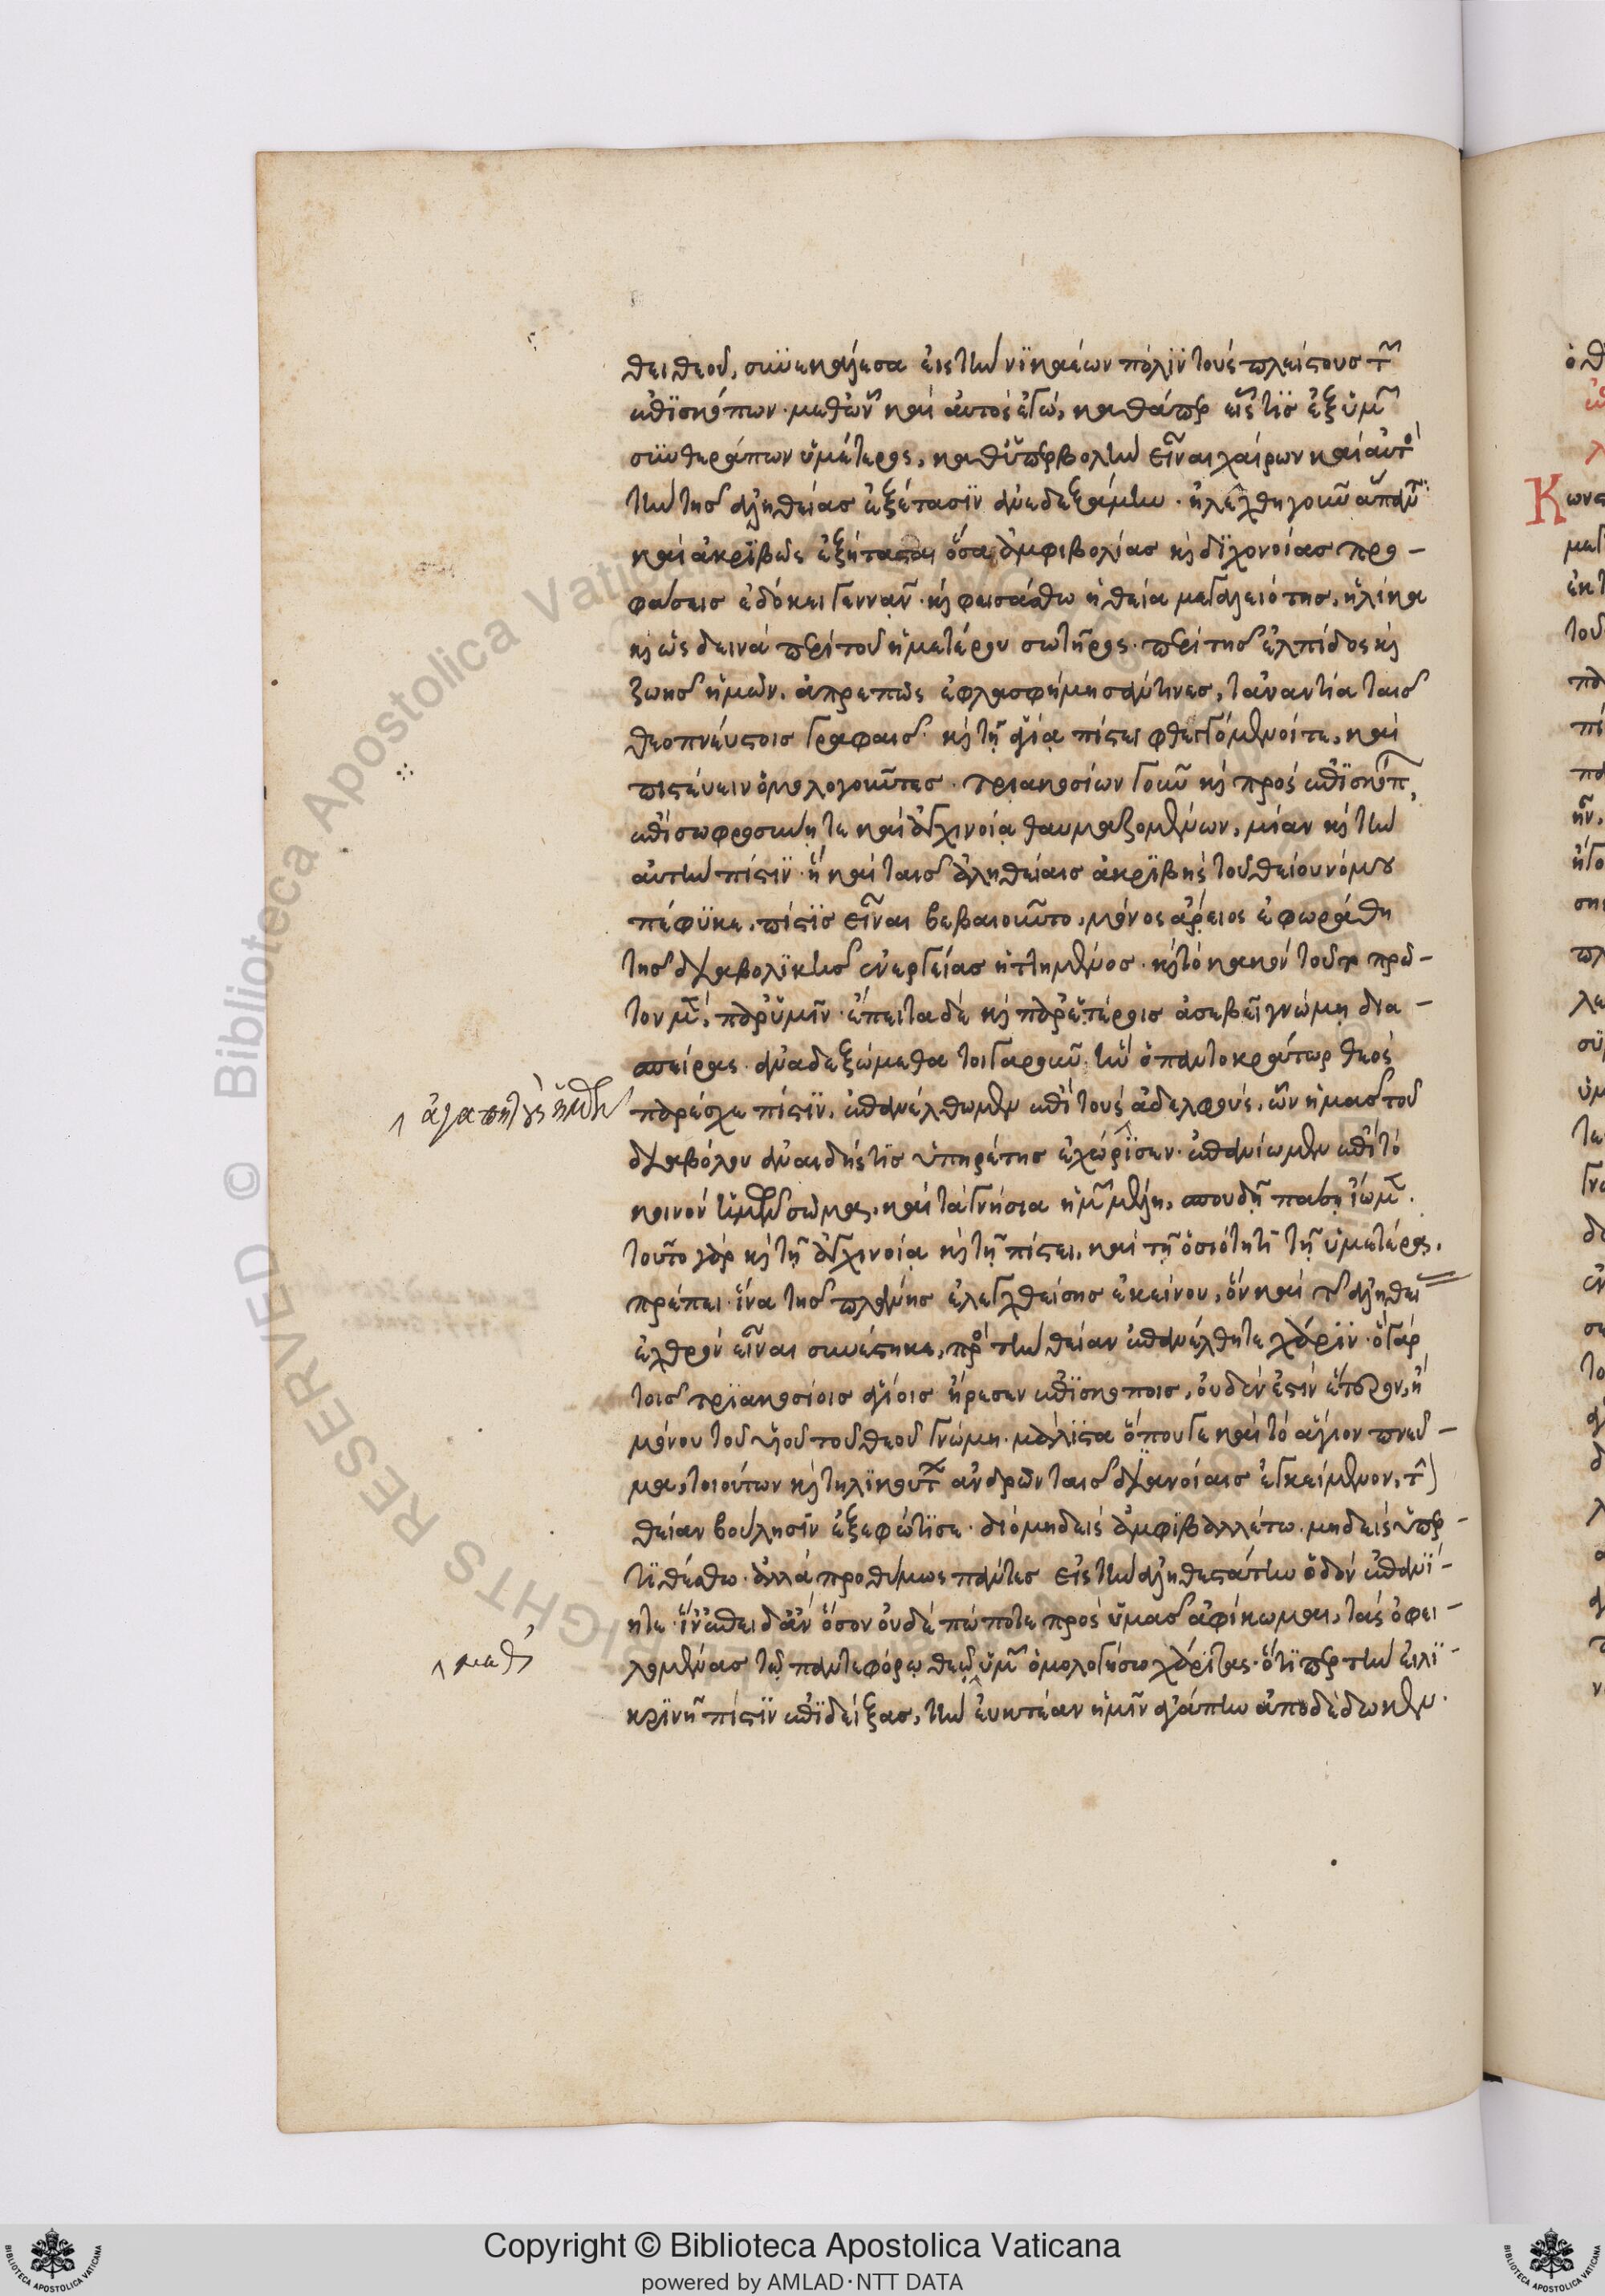 θει θεοῦ, συνεκάλεσα εἰς τὴν νϊκαέων πόλϊν τοὺς πλείστους τῶν
ἐπϊσκόπων· μεθ' ὧν καὶ αὐτὸς ἐγὼ, καθάπερ εἷς τῒς ἐξ ὑμῶν
συνθεράπων ὑμέτερος, καθ' ὑπερβολὴν εἶναι χαίρων καὶ αὐτὸς
τὴν τῆς ἀληθείας ἐξέτασϊν ἀνεδεξάμην· ἠλέγχθη γοῦν ἅπαντα
καὶ ἀκρϊβῶς ἐξήτασται ὅσα ἀμφιβολίας καὶ δϊχονοίας προ-
φάσεις ἐδόκει γεννᾶν· καὶ φεισάσθω ἡ θεία μεγαλειότης, ἡλίκα
καὶ ὡς δεινὰ περὶ τοῦ ἡμετέρου σωτῆρος· περὶ τῆς ἐλπίδος καὶ
ζωῆς ἡμῶν, ἀπρεπῶς ἐβλασφήμησάν τινες, τἀναντία ταῖς
θεοπνεύστοις γραφαῖς· καὶ τῇ ἁγίᾳ πίστει φθεγγόμενοί τε, καὶ
πιστεύειν ὁμολογοῦντες· τριακοσίων γοῦν καὶ πρὸς ἐπϊσκόπων,
ἐπὶ σωφροσύνῃ τε καὶ ἀγχινοίᾳ θαυμαζομένων, μίαν καὶ τὴν
αὐτὴν πίστϊν· ἣ καὶ ταῖς ἀληθείαις ἀκρϊβὴς τοῦ θείου νόμου
πέφϋκε, πίστϊς εἶναι βεβαιοῦντο, μόνος ἄρειος ἐφωράθη
τῆς διαβολϊκῆς ἐνεργείας ἡττημένος· καὶ τὸ κακὸν τοῦτο πρῶ-
τον μὲν, παρ' ὑμῖν· ἔπειτα δὲ καὶ παρ' ἑτέροις ἀσεβεῖ γνώμῃ δια-
σπείρας· ἀναδεξώμεθα τοιγαροῦν· ἣν ὁ παντοκράτωρ θεὸς
παρέσχε πίστϊν, ἐπανέλθωμεν ἐπὶ τοὺς ἀδελφοὺς, ὧν ἡμᾶς τοῦ
^ ἀγαπητοὺς ἡμῶν
διαβόλου ἀναιδής τϊς ὑπηρέτης ἐχώρϊσεν· ἐπανίωμεν ἐπὶ τὸ
κοινὸν σῶμα, καὶ τὰ γνήσια ἡμῶν μέλη, σπουδῇ πάσῃ ἴωμεν.
τοῦτο γὰρ καὶ τῇ ἀγχινοίᾳ καὶ τῇ πίστει, καὶ τῇ ὁσιότητι τῇ ὑμετέρᾳ,
πρέπει· ἵνα τῆς πλάνης ἐλεγχθείσης ἐκείνου, ὃν καὶ τῆς ἀληθεί
ἐχθρὸν εἶναι συνέστηκε, πρὸς τὴν θείαν ἐπανέλθητε χάρϊν· ὃ γὰρ
τοῖς τρϊακοσίοις ἁγίοις ἤρεσεν ἐπϊσκόποις, οὐδέν ἐστιν ἕτερον, ἢ
μόνου τοῦ υἱοῦ τοῦ θεοῦ γνώμη· μάλϊστα ὅπου γε καὶ τὸ ἅγιον πνεῦ-
μα, τοιούτων καὶ τηλϊκούτων ἀνδρῶν ταῖς διανοίαις ἐγκείμενον, τὴν
θείαν βούλησϊν ἐξεφώτϊσε· διὸ μηδεὶς ἀμφϊβαλλέτω· μηδεὶς ὑπερ-
τϊθέσθω· ἀλλὰ προθύμως πάντες εἰς τὴν ἀληθεστάτην ὁδὸν ἐπανϊ-
ητε· ἵν' ἐπειδὰν ὅσον οὐδέπώποτε πρὸς ὑμᾶς ἀφίκωμαι, τὰς ὀφει-
λομένας τῷ παντεφόρῳ θεῷ ὑμῶν ὁμολογήσω χάρϊτας· ὅτϊπερ τὴν εἰλϊ-
^ μεθ'
κρϊνῆ πίστϊν ἐπϊδείξας, τὴν εὐκτέαν ἡμῖν ἀγάπην ἀποδέδωκεν.